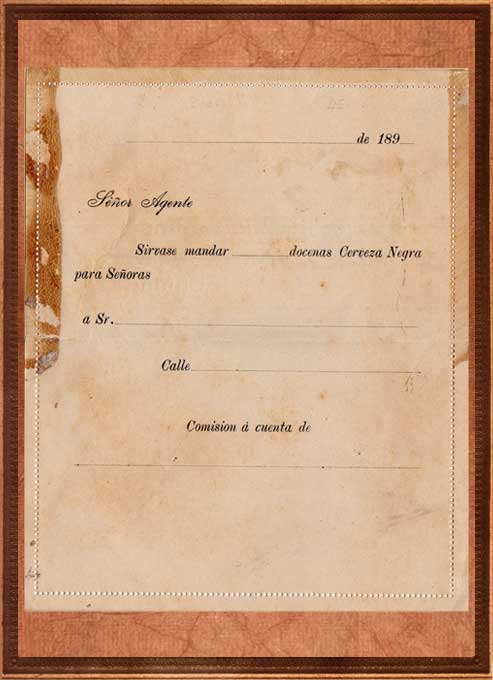 de 189
Señor Agente
Sirvase mandar docenas Cerveza Negra
para Señoras
a Sr.
Calle
Comision á cuenta de